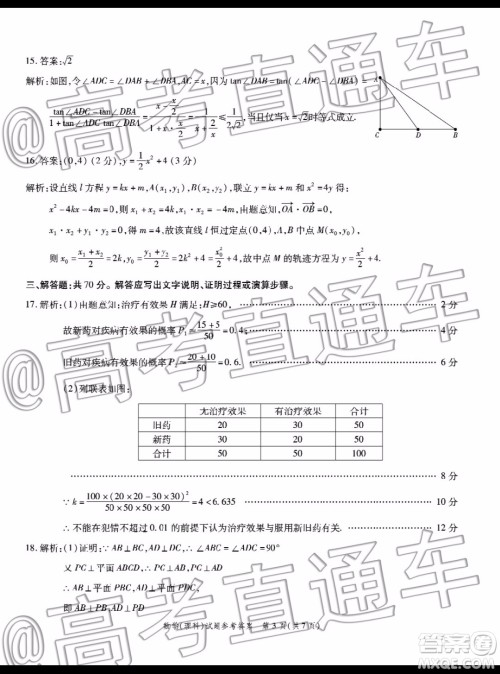 15. 答案:√2
解析:如图,令∠ADC=∠DAB+∠DBA,AC=x,因为tan∠DAB=tan(∠ADC-∠DBA)=
(tan∠ADC-tan∠DBA)/(1+tan∠ADC·tan∠DBA)=(x-x/2)/(1+x·x/2)=1/(x+2/x)≤1/(2√2),当且仅当x=√2时等式成立.
A
C D B
16. 答案:(0,4)(2分),y=1/2x²+4(3分)
解析:设直线l方程y=kx+m,A(x₁,y₁),B(x₂,y₂),联立y=kx+m和x²=4y得:
x²-4kx-4m=0,则x₁+x₂=4k,x₁·x₂=-4m,由题意知,OA·OB=0,
x₁·x₂+y₁·y₂=0,得m=4,故该直线l恒过定点(0,4),A、B中点M(x₀,y₀),
则x₀=(x₁+x₂)/2=2k,y₀=(y₁+y₂)/2=2k²+4=x₀²/2+4,故中点M的轨迹方程为y=x²/2+4.
三、解答题:共70分。解答应写出文字说明、证明过程或演算步骤。
17. 解析:(1)由题意知:治疗有效果H满足:H≥60, 2分
故新药对疾病有效果的概率P₁=(15+5)/50=0.4; 4分
旧药对疾病有效果的概率P₂=(20+10)/50=0.6. 6分
(2)列联表如图:
无治疗效果 有治疗效果 合计
旧药 20 30 50
新药 30 20 50
合计 50 50 100
8分
∵k=100×(20×20-30×30)²/(50×50×50×50)=4<6.635 10分
∴不能在犯错不超过0.01的前提下认为治疗效果与服用新旧药有关. 12分
18. 解析:(1)证明:∵AB⊥BC,AD⊥DC,∴∠ABC=∠ADC=90°
又∵PC⊥平面ABCD,∴PC⊥AD,PC⊥AB
∴AB⊥平面PBC,AD⊥平面PDC,
即AB⊥PB,AD⊥PD
数学(理科)试题参考答案 第3页(共7页)
@高考直通车
@高考直通车
@高考直通车
答案圈
MXQE.COM